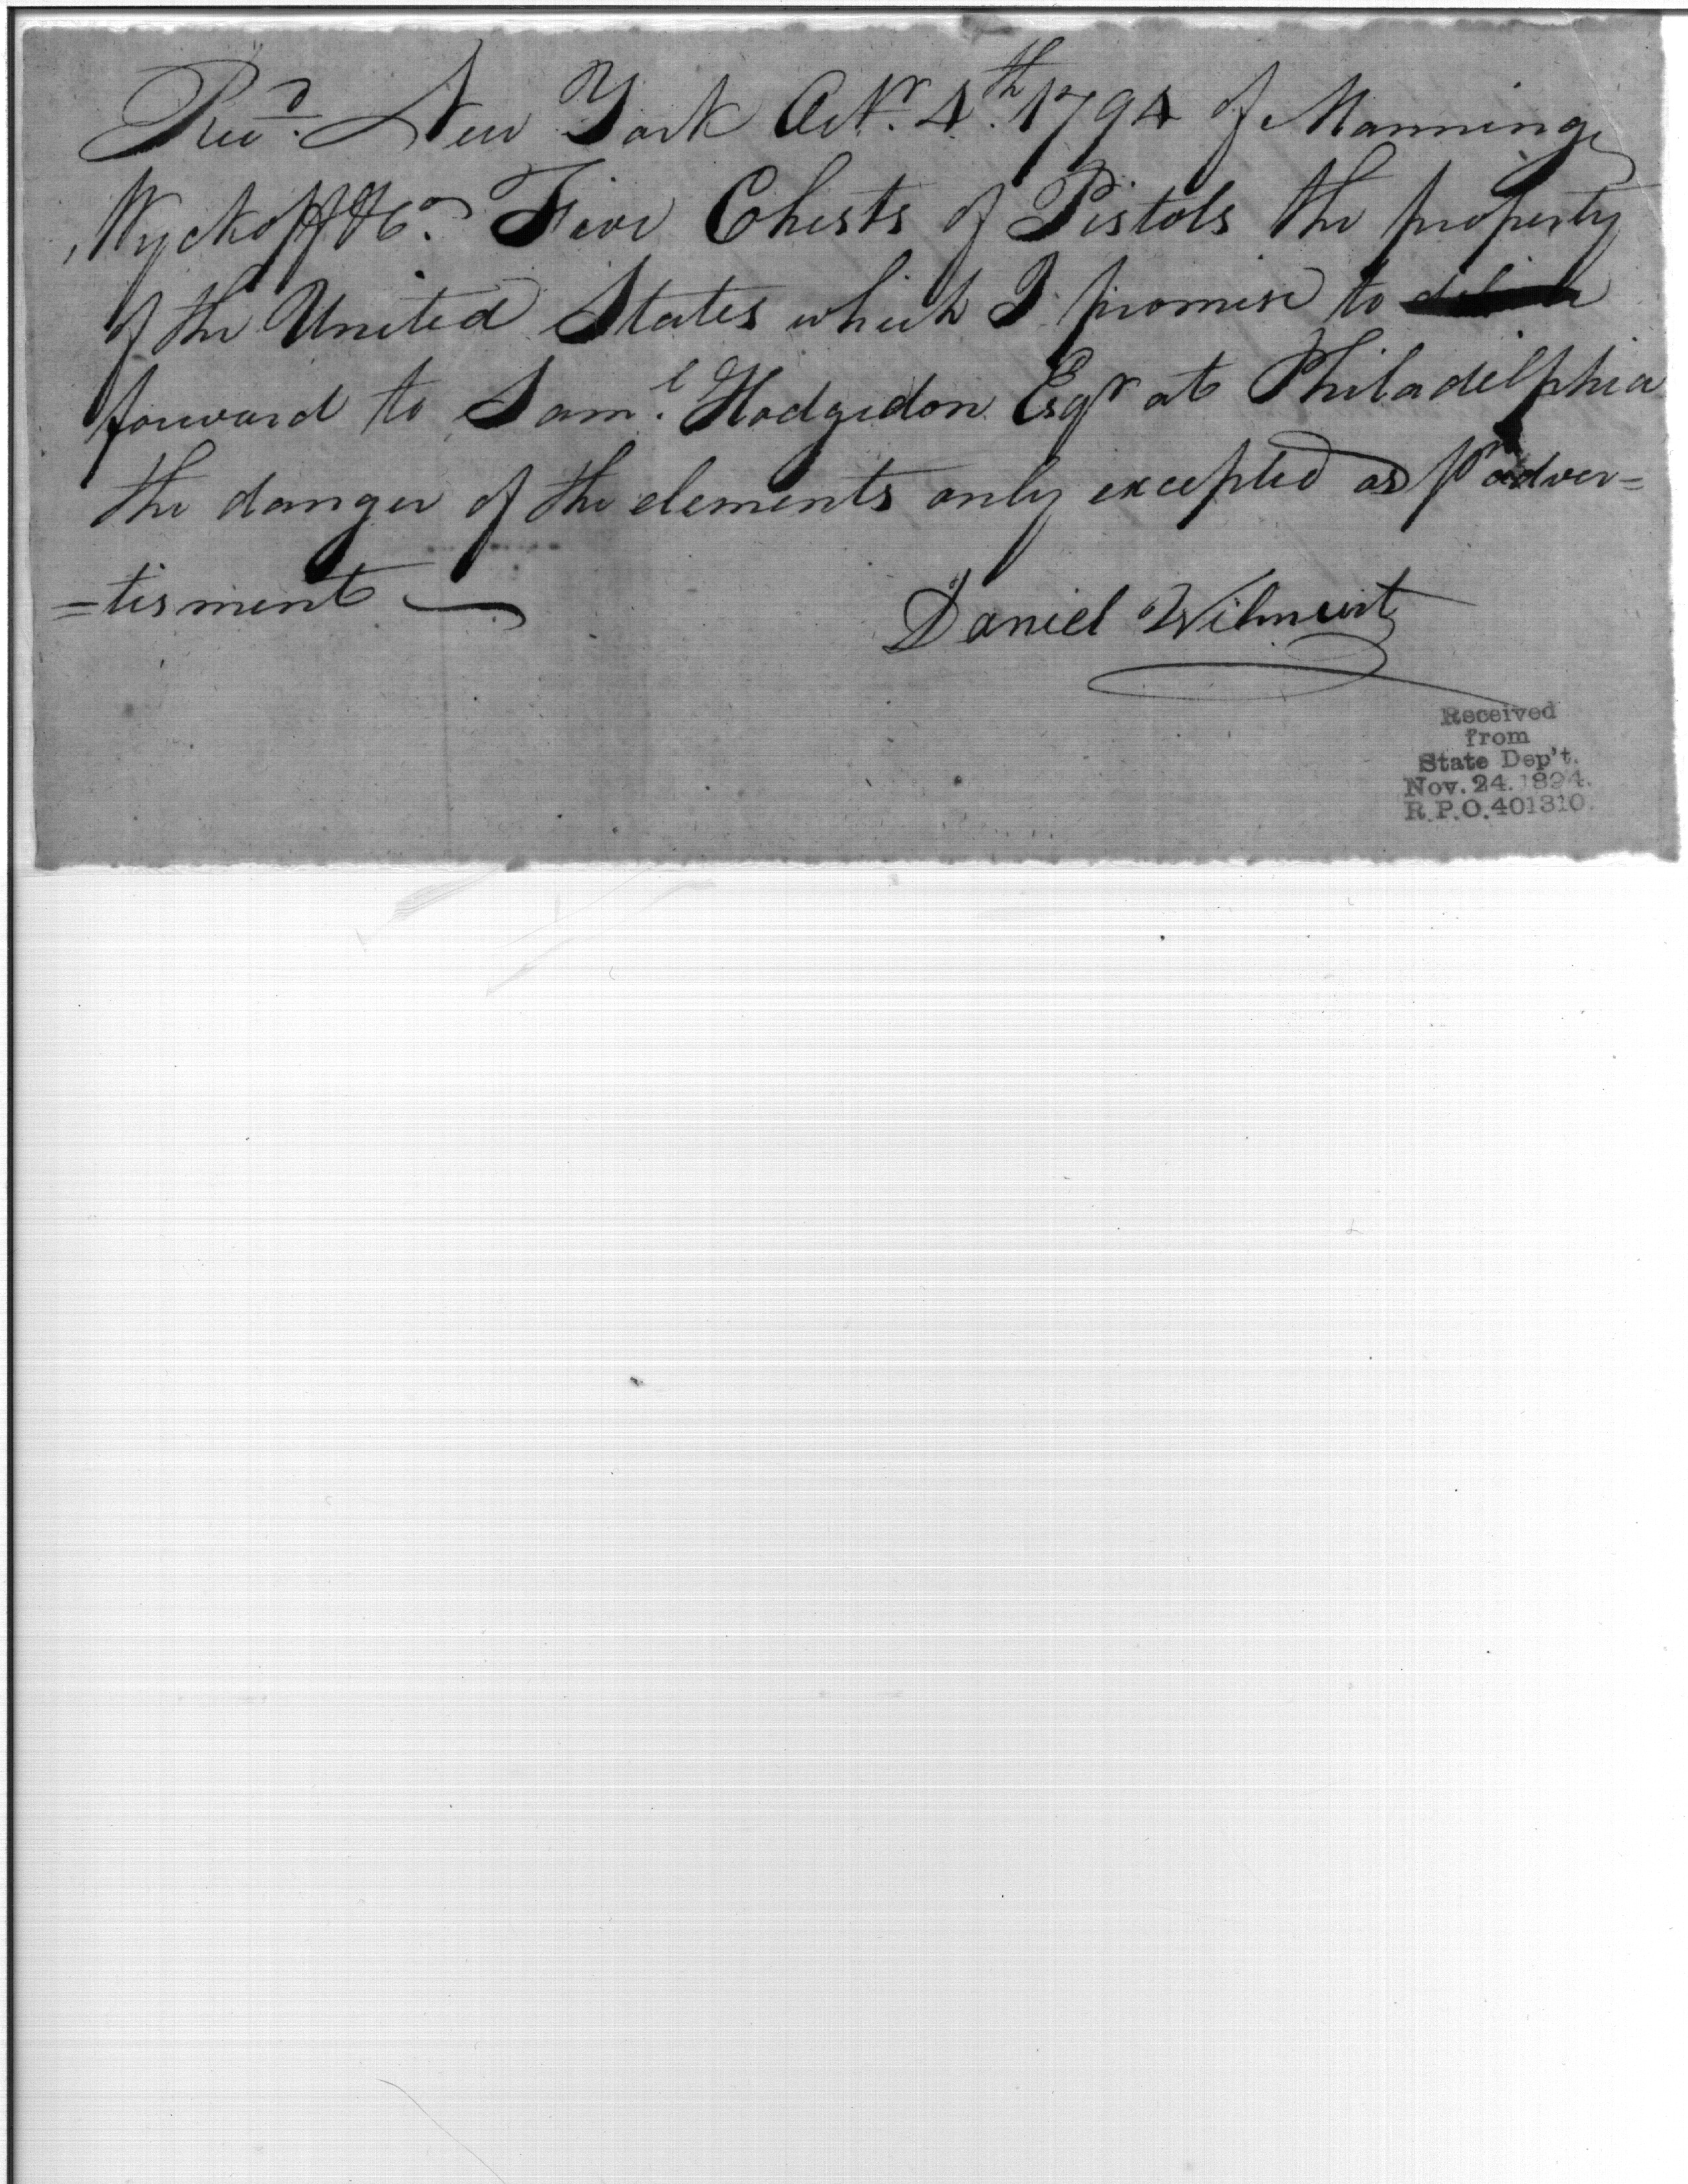 Recd. New York Octr. 4th. 1794 of Manning
Wyckoff & Co. Five Chests of Pistols the property
of the United States which I promise to
forward to Saml. Hodgsdon Esqr at Philadelphia
the danger of the elements only excepted as pr adver=
=tisment
Daniel Wilmurt
Received
from
State Dep't.
Nov. 24. 1894.
R.P.O. 401310.